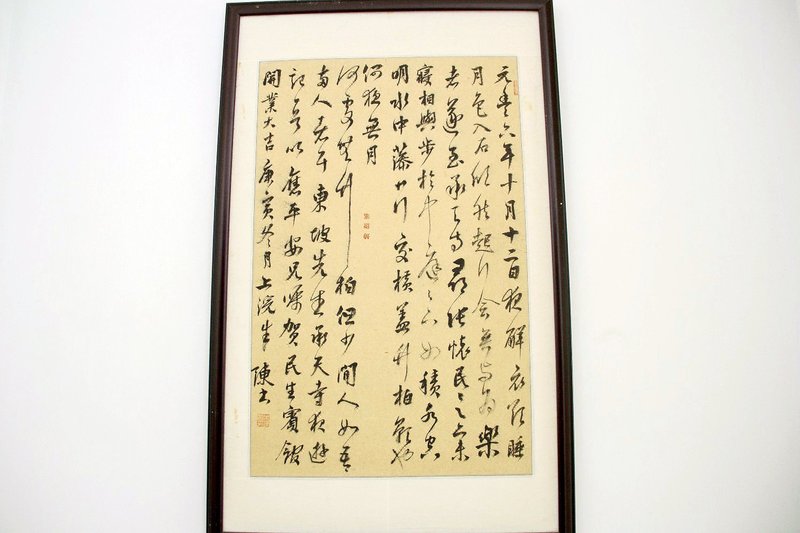 元豐六年十月十二日夜解衣欲睡
月色入戶欣然起行念無與為樂
者遂至承天寺尋張懷民〻亦未
寢相與步於中庭〻下如積水空
明水中藻荇交橫蓋竹柏影也
何夜無月
何處無竹柏但少閒人如吾
兩人者耳東坡先生承天寺夜遊
記以應平安兄囑賀民生賓館
開業大吉庚寅冬月上浣陳